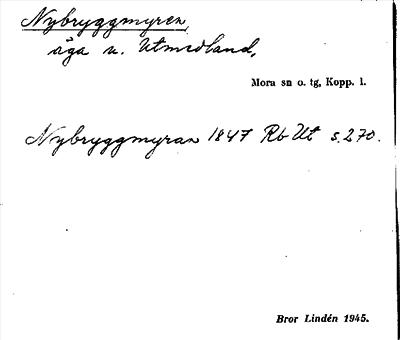 Nybryggmyren,
äga u. Utmedland,
Mora sn o. tg, Kopp. l.
Nybryggmyran 1847 Rb Ut s. 270.
Bror Lindén 1945.